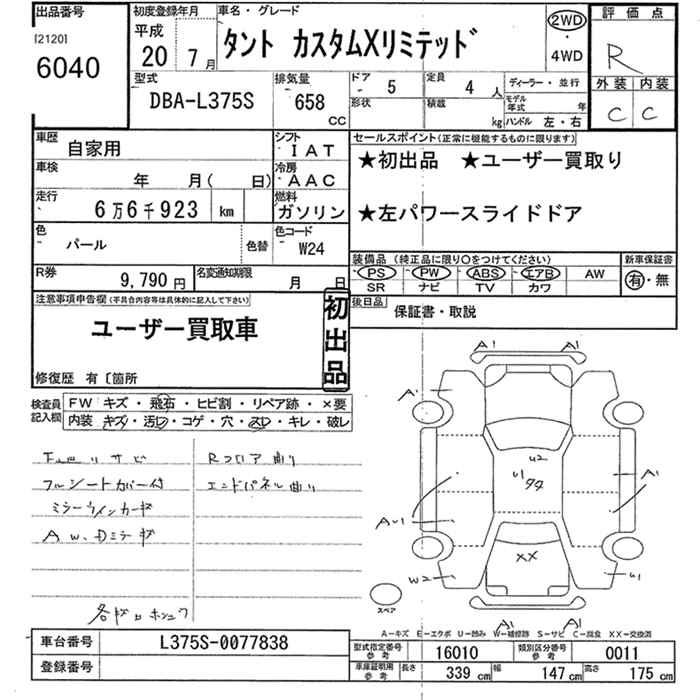 出品番号
[2120]
6040
初度登録年月
平成
20年 7月
車名・グレード
タント カスタムXリミテッド
2WD
・
4WD
評価点
R
外装 内装
C C
型式
DBA-L375S
排気量
658
CC
ドア 5
定員 4人
形状
積載 kg
ディーラー・並行
モデル年式 年
ハンドル 左・右
車歴
自家用
シフト
IAT
車検
年 月( 日)
冷房
AAC
走行
6万6千923 km
燃料
ガソリン
色
パール
色替
色コード
W24
R券
9,790円
名変通知期限
月 日
セールスポイント(正常に機能するものに限ります)
★初出品 ★ユーザー買取り
★左パワースライドドア
装備品(純正品に限り○をつけてください)
新車保証書
PS PW ABS エアB AW
SR ナビ TV カワ
有・無
後日品
保証書・取説
注意事項申告欄(不具合内容等は具体的に記入して下さい)
ユーザー買取車
初出品
修復歴 有〔箇所
検査員記入欄
FW キズ・飛石・ヒビ割・リペア跡・×要
内装 キズ・汚レ・コゲ・穴・スレ・キレ・破レ
サビ
Rフロア曲り
フルシートカバー付
エンドパネル曲り
ミラーウインカーキズ
AW、Dミラーキズ
A1
A1
A
U2
U1
A1
AU1
XX
W2
U1
スペア
A1
A1
A—キズ E—エクボ U—凹み W—補修跡 S—サビ C—腐食 XX—交換済
車台番号
L375S-0077838
登録番号
型式指定番号 参考
16010
類別区分番号 参考
0011
車庫証明用 参考
長さ 339 cm
幅 147 cm
高さ 175 cm